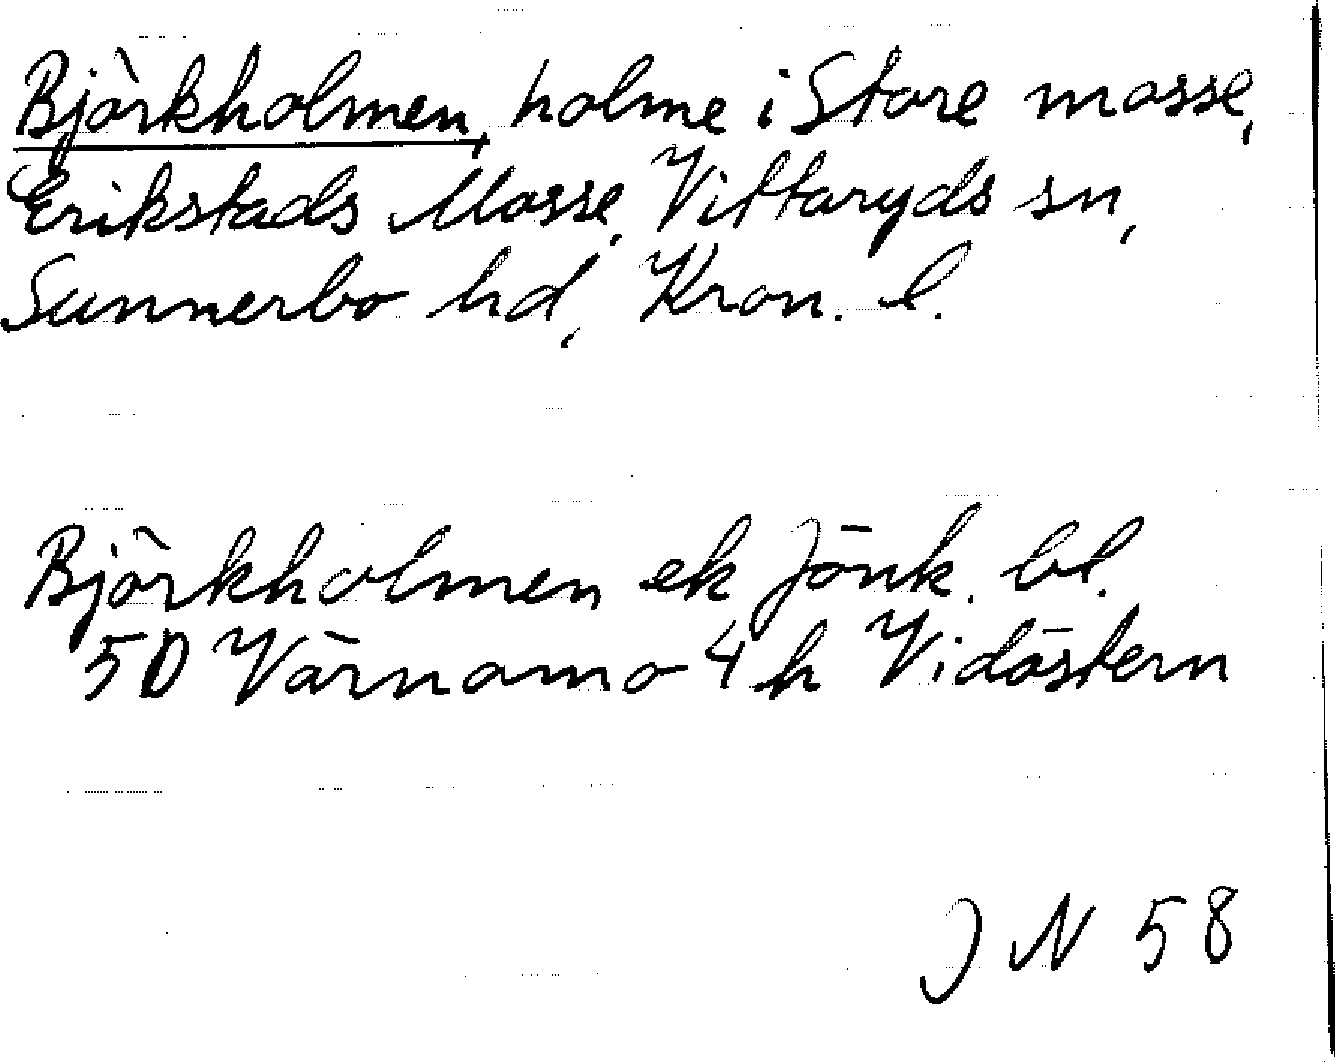 Björkholmen, holme i Store mosse,
Erikstads Mosse, Vittaryds sn,
Sunnerbo hd, Kron. l.
Björkholmen ek Jönk. bl.
5D Värnamo 4 h Vidöstern
J N 58